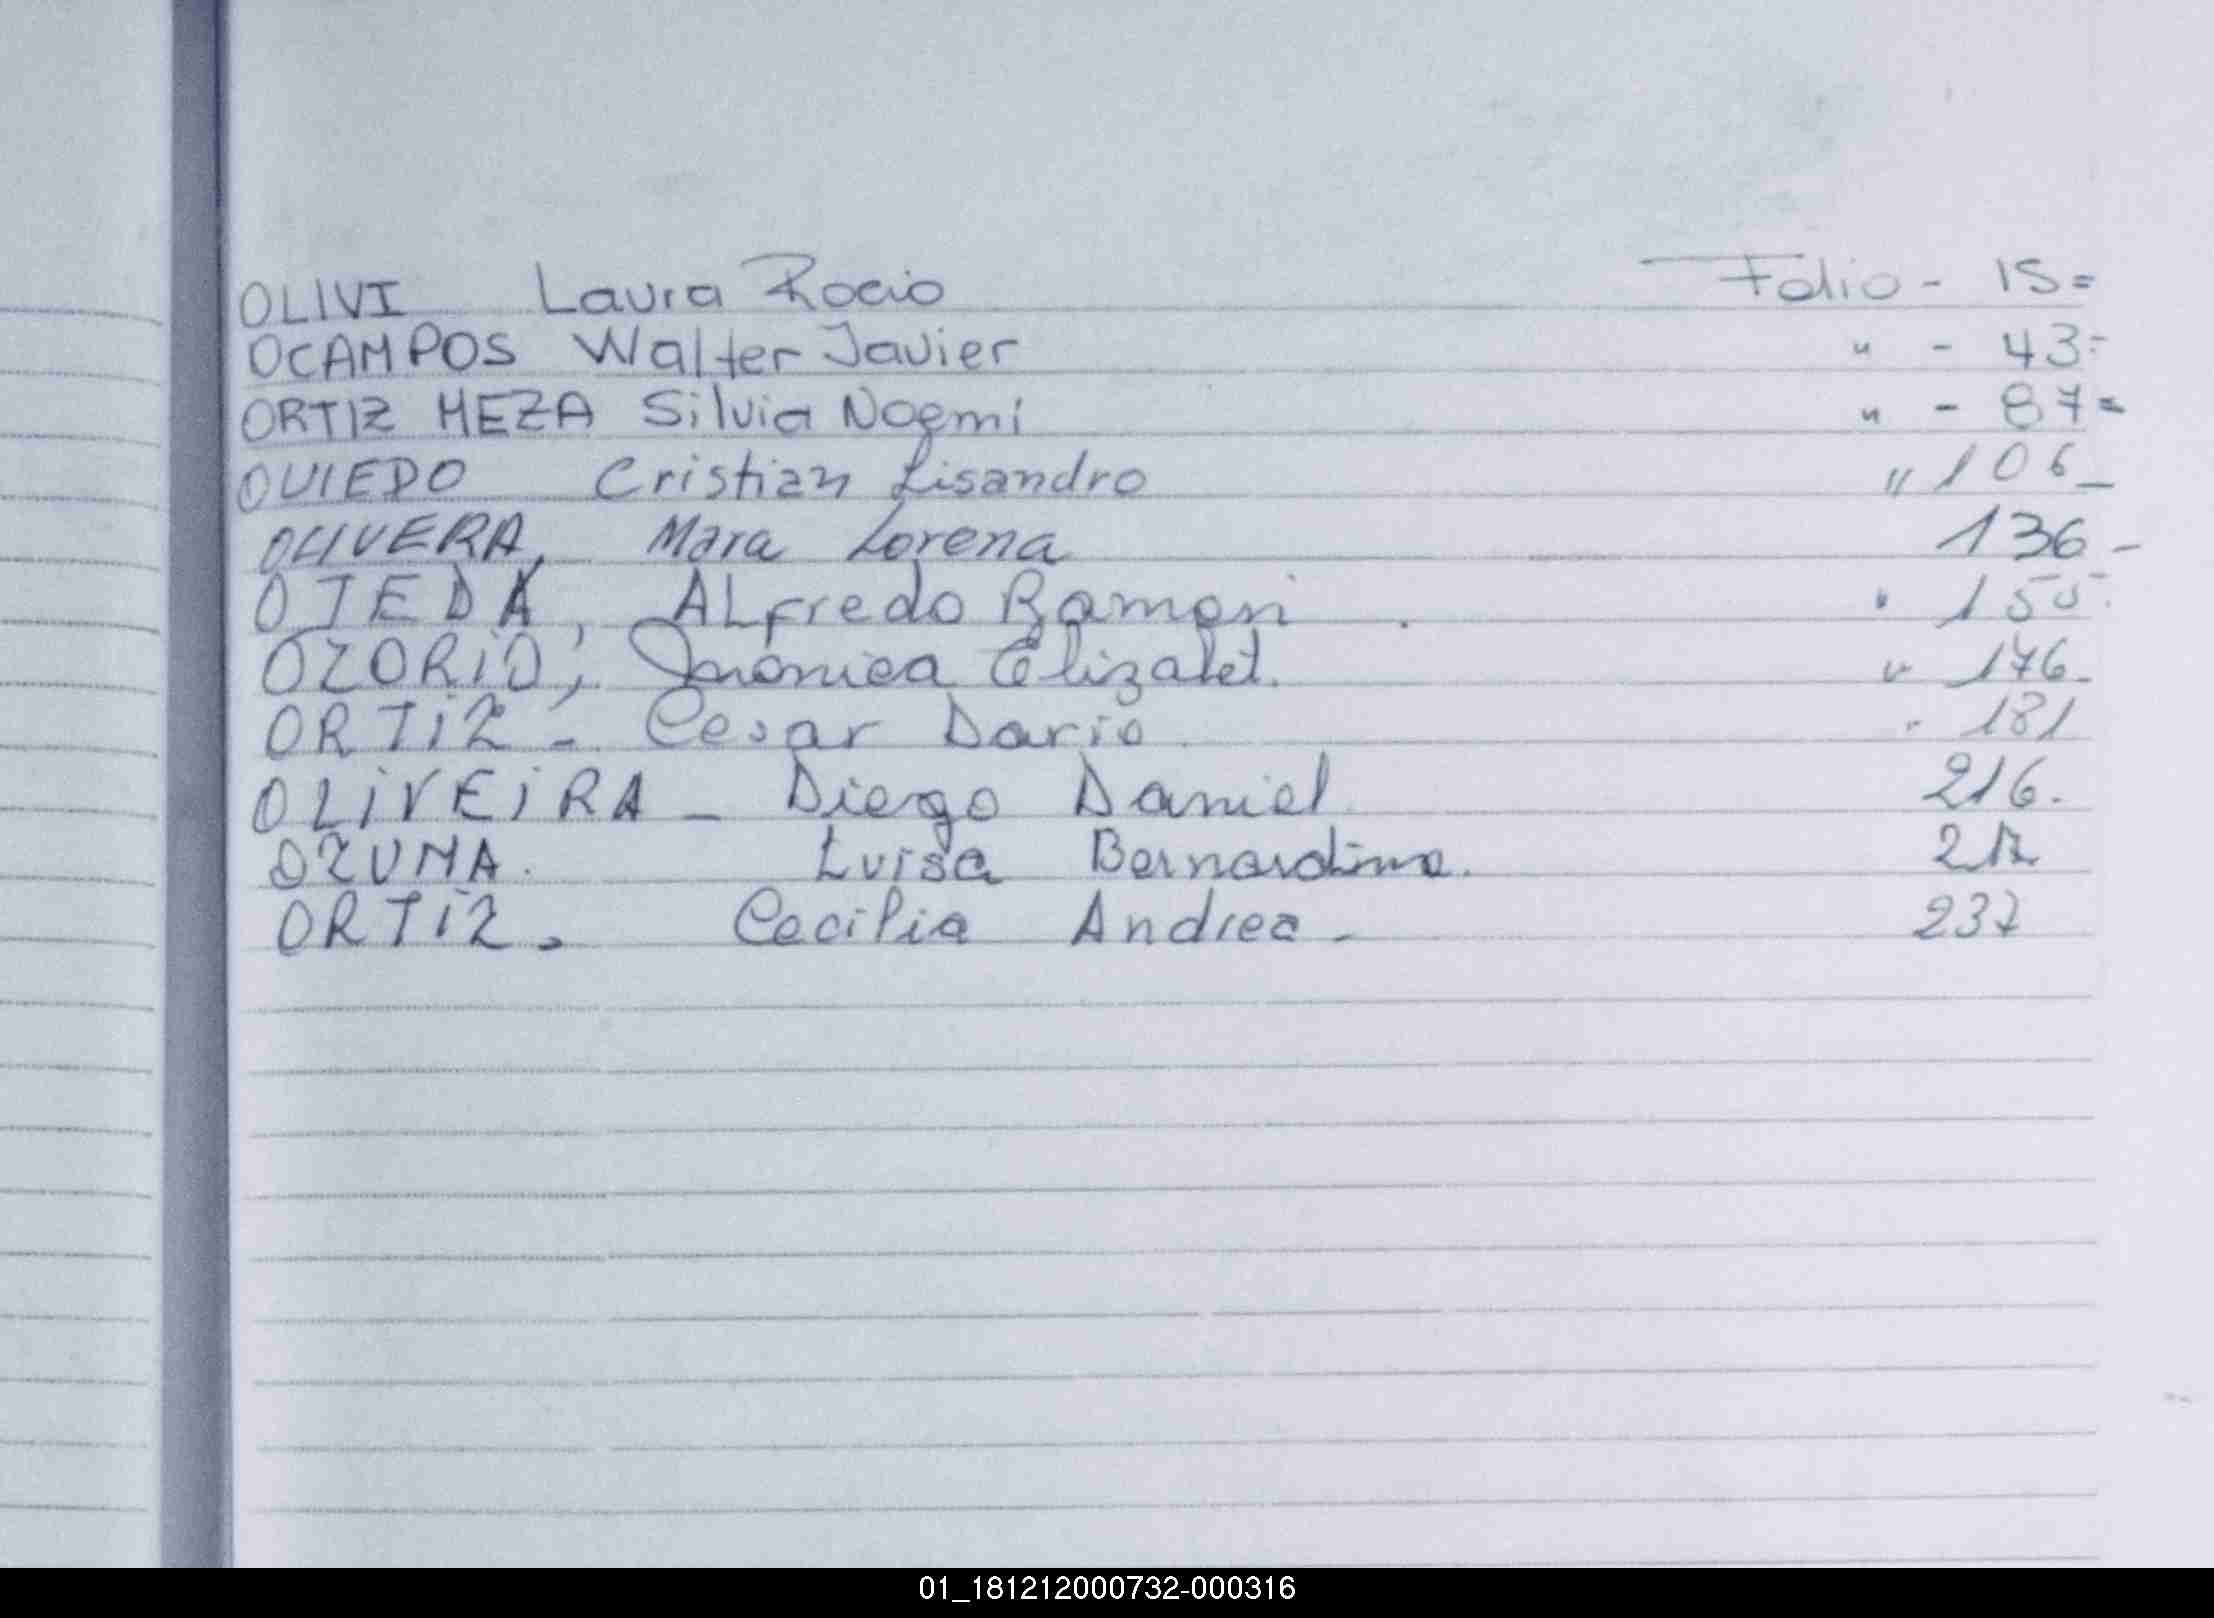 OLIVI Laura Rocio Folio - 15=
OCAMPOS Walter Javier " - 43=
ORTIZ MEZA Silvia Noemi " - 87=
OVIEDO Cristian Lisandro " 106_
OLIVERA, Mara Lorena 136-
OJEDA, ALfredo Ramon . " 155-
OZORIO, Elizabet. " 176-
ORTiZ - Cesar Dario " 181
OLiVEiRA - Diego Daniel 216.
OZUNA. Luisa Bernardina.
ORTiZ. Cecilia Andrea - 237
01_181212000732-000316